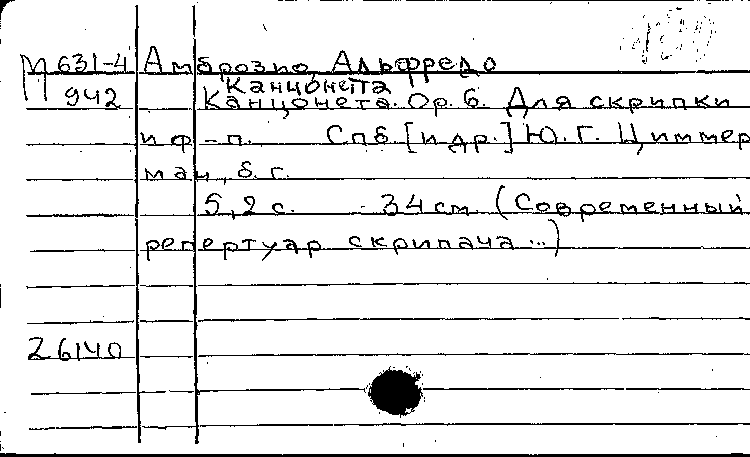 М 631-4 Амброзио, Альфредо
Канцонетта
942 Канцонета. Op. 6. Для скрипки
и ф-п. Спб. [и др.] Ю. Г. Циммер
ман, б. г.
5,2 с. 34 см (Современный
репертуар скрипача ...)
26140